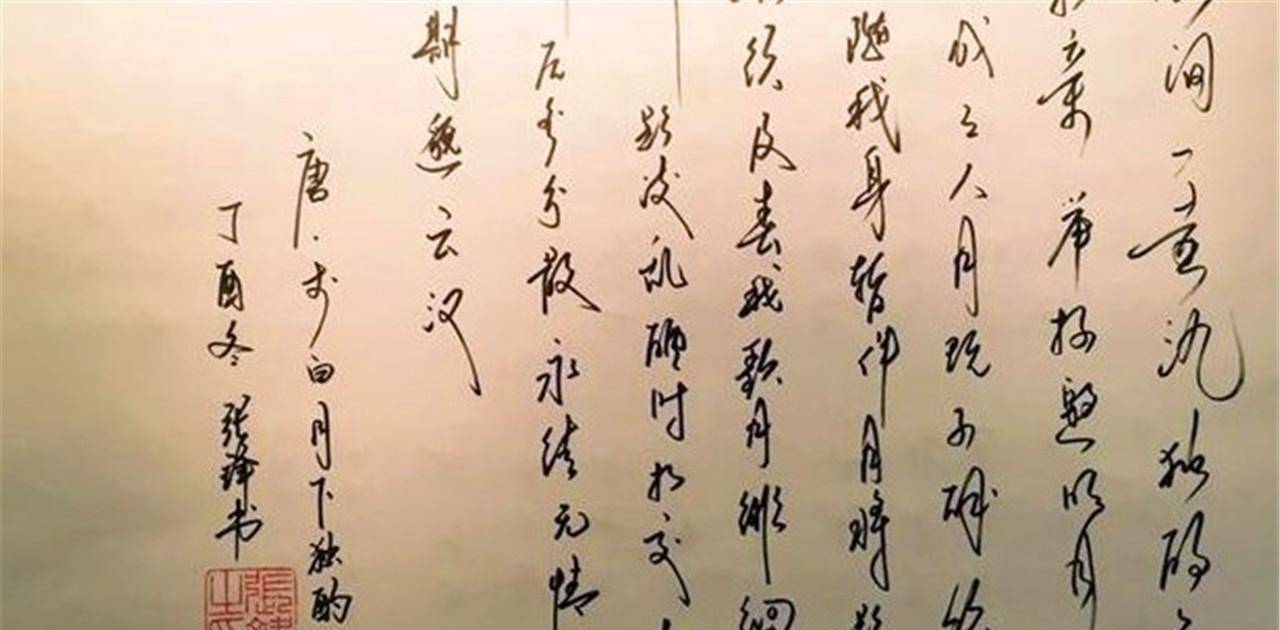 间一壶酒独酌
亲举杯邀明月
成三人月既不解饮
随我身暂伴月将影
须及春我歌月徘徊
影凌乱醒时相交
后各分散永结无情
期邈云汉
唐·李白月下独酌
丁酉冬张书